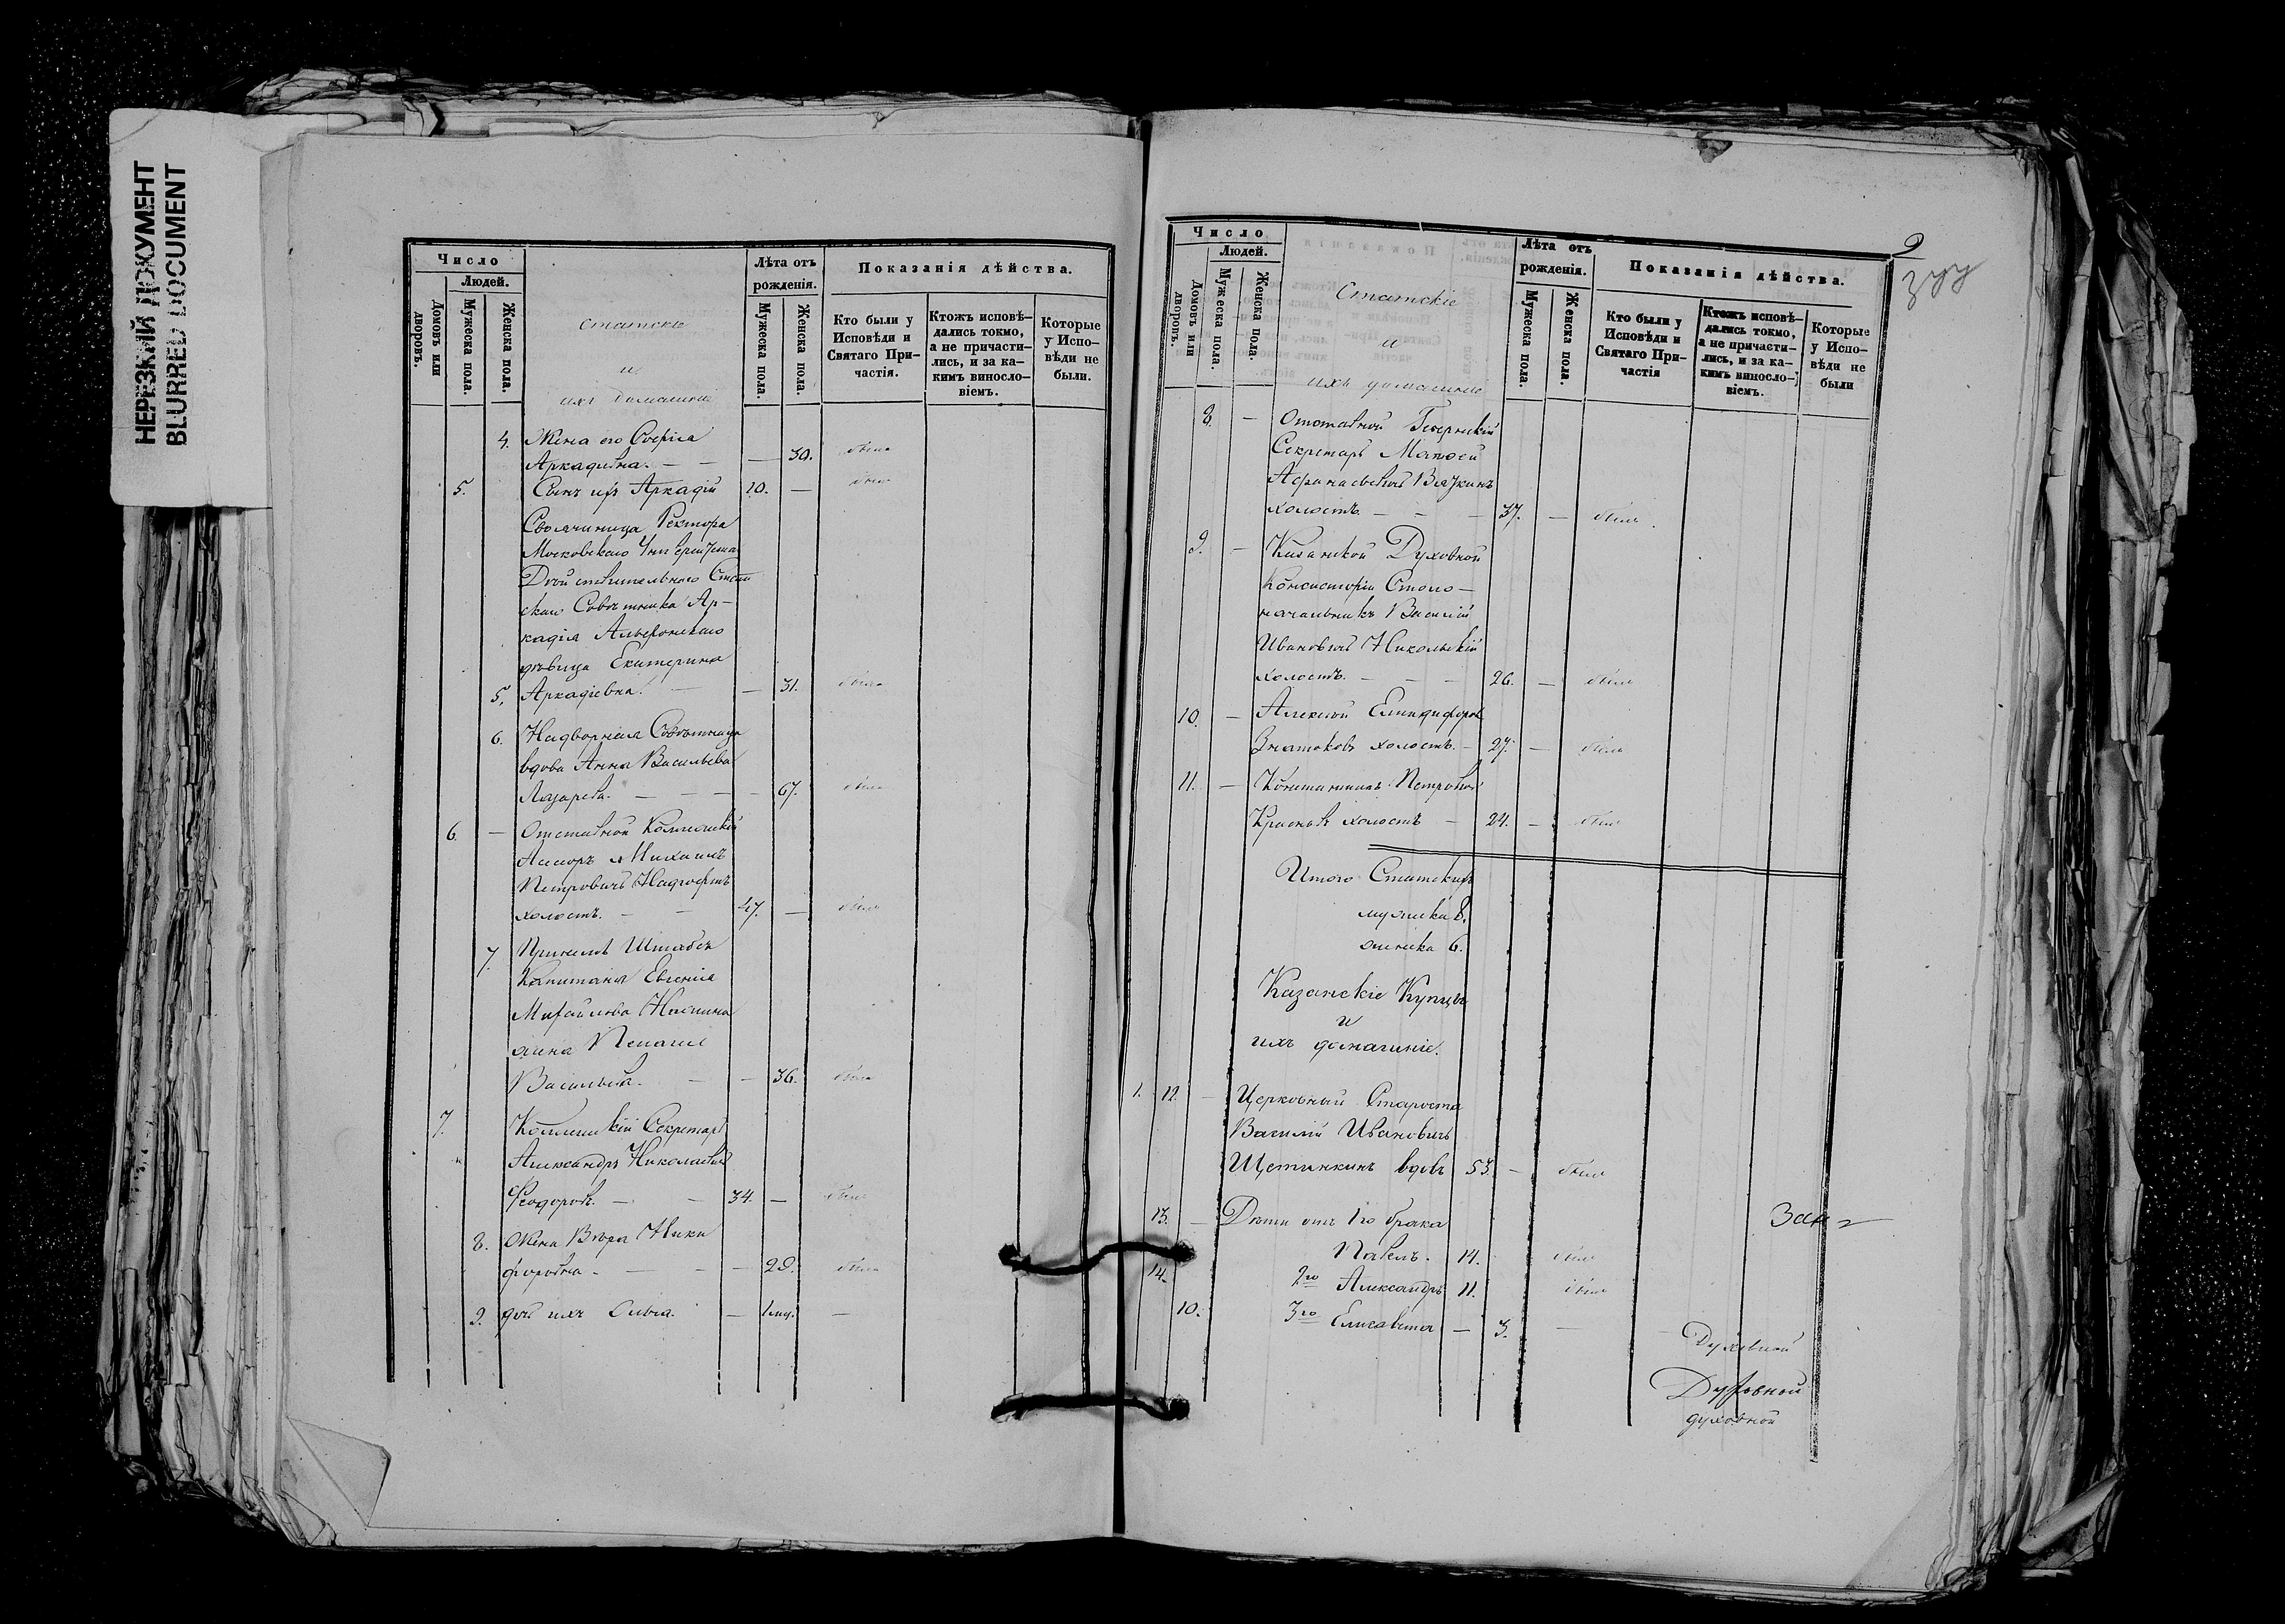 НЕРЕЗКИЙ ДОКУМЕНТ
BLURRED DOCUMENT
Число
Людей.
Домовъ или дворовъ.
Мужеска пола.
Женска пола.
Статскіе
и
ихъ домашніе
Лѣта отъ
рожденія.
Мужеска пола.
Женска пола.
Показанія дѣйства.
Кто были у
Исповѣди и
Святаго При-
частія.
Ктожъ исповѣ-
дались токмо,
а не причасти-
лись, и за ка-
кимъ винославіемъ.
Которые
у Испо-
вѣди не
были.
4. Жена его Софія
Аркадіевна. — — — 30. была
5. Сынъ ихъ Аркадій 10. — былъ
Своячиница Ректора
Московскаго Университета
Дѣйствительнаго Стат
скаго Совѣтника Ар-
кадія Альфонскаго
дѣвица Екатерина
5. Аркадіевна. — — 31. была
6. Надворная Совѣтница
вдова Анна Васильева
Лазарева. — — — 67. была
6. — Отставной Коллежскій
Ассесоръ Михаилъ
Петровичъ
холостъ. — — 47. — былъ
7. Штабсъ
Капитана Евгенія
Михайлова
жена
Васильева. — — 36. была
7. Коллежскій Секретарь
Александръ Николаевичъ
Феодоровъ. — — 34. — былъ
8. Жена Вѣра Ники
форовна — — — 28. была
9. дочь ихъ Ольга. — 1 мц. —
Число
Людей.
Домовъ или дворовъ.
Мужеска пола.
Женска пола.
Статскіе
и
ихъ домашніе
Лѣта отъ
рожденія.
Мужеска пола.
Женска пола.
Показанія дѣйства.
Кто были у
Исповѣди и
Святаго При-
частія
Ктожъ исповѣ-
дались токмо,
а не причасти-
лись, и за ка-
кимъ виносло-
віемъ.
Которые
у Испо-
вѣди не
были
9
8. — Отставной Губернскій
Секретарь Матвей
Афанасьевичъ Вязкинъ
холостъ. — — — 37. — былъ
9. — Казанской Духовной
Консисторіи Столо-
начальникъ Василій
Ивановичъ Никольскій
холостъ. — — — 26. — былъ
10. — Алексѣй Елпидифоровъ
Знатоковъ холостъ. — 27. — былъ
11. — Константинъ Петровъ
холостъ — 24. — былъ
Итого Статскихъ
мужеска 8.
женска 6.
Казанскіе Купцы
и
ихъ домашніе.
1. 12. — Церковный Староста
Василій Ивановичъ
Щетинкинъ вдовъ 53. — былъ
13. — Дѣти отъ 1го брака
Павелъ. 14. былъ
14. 2го Александръ 11. былъ
10. 3го Елисавета — 3. —
Духовной
Духовной
духовной